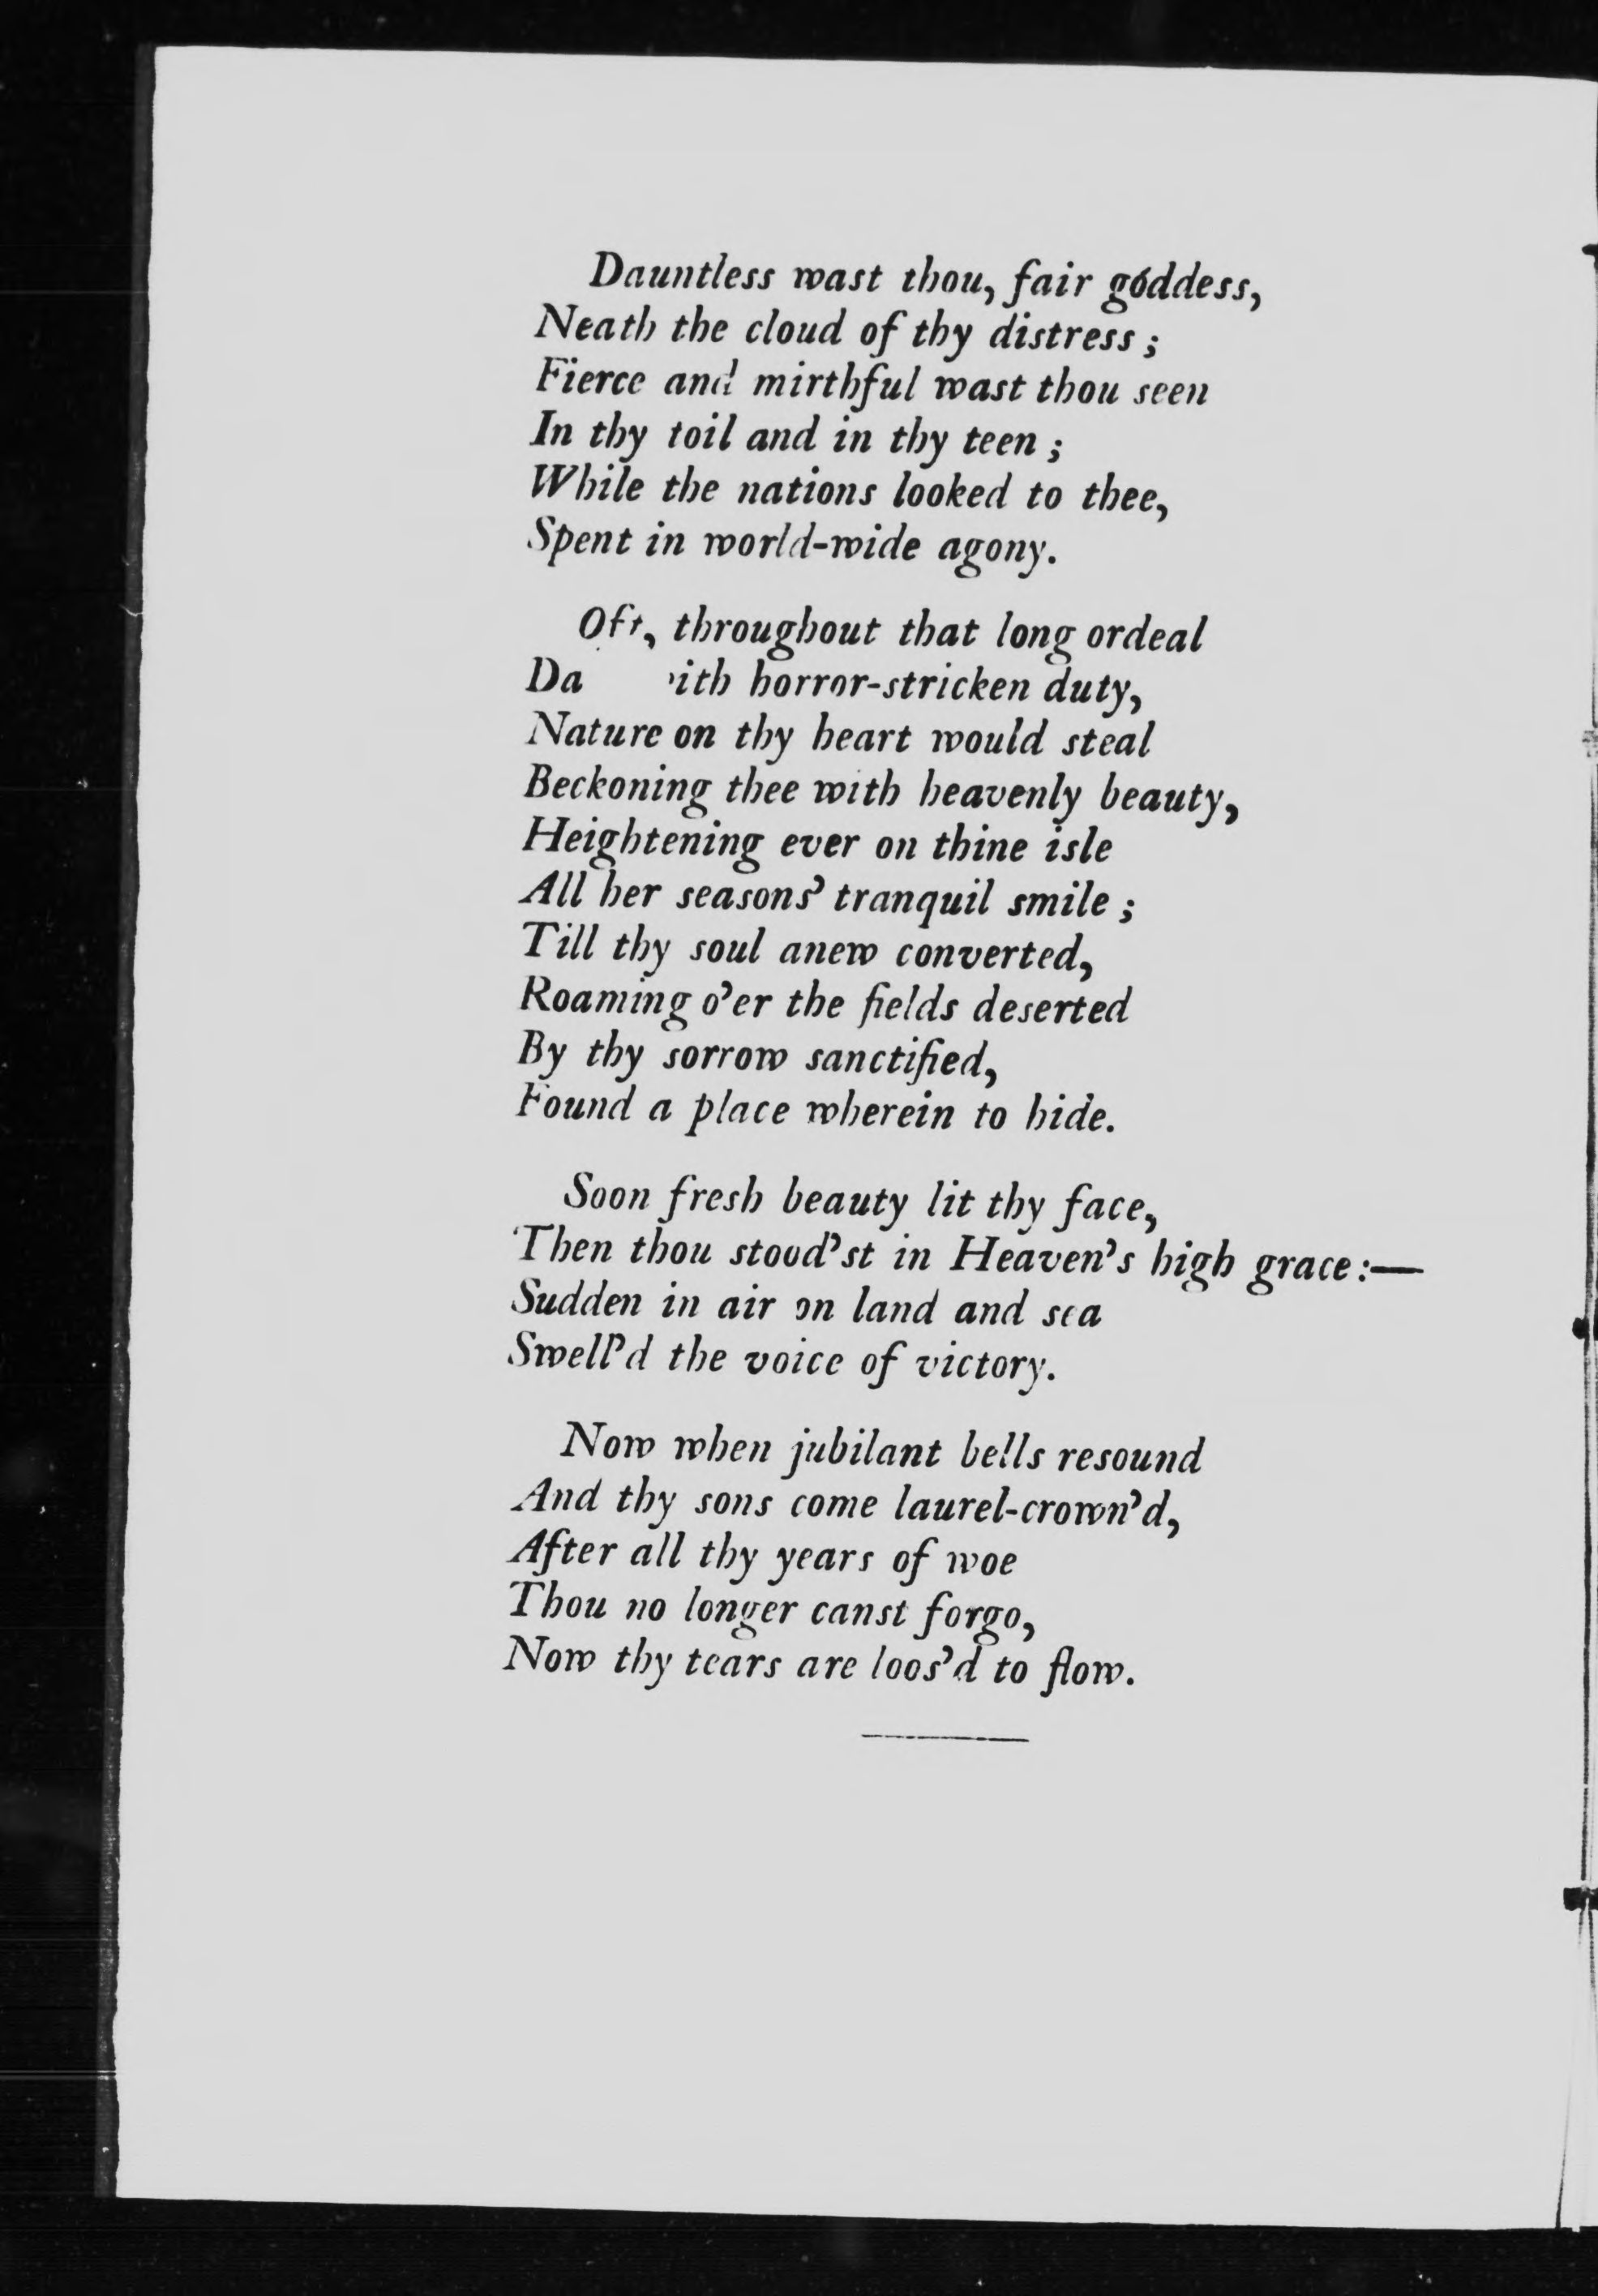 Dauntless wast thou, fair góddess,
Neath the cloud of thy distress ;
Fierce and mirthful wast thou seen
In thy toil and in thy teen ;
While the nations looked to thee,
Spent in world-wide agony.
Oft, throughout that long ordeal
horror-stricken duty,
Nature on thy heart would steal
Beckoning thee with heavenly beauty,
Heightening ever on thine isle
All her seasons' tranquil smile ;
Till thy soul anew converted,
Roaming o'er the fields deserted
By thy sorrow sanctified,
Found a place wherein to hide.
Soon fresh beauty lit thy face,
Then thou stood'st in Heaven's high grace:—
Sudden in air on land and sea
Swell'd the voice of victory.
Now when jubilant bells resound
And thy sons come laurel-crown'd,
After all thy years of woe
Thou no longer canst forgo,
Now thy tears are loos'd to flow.